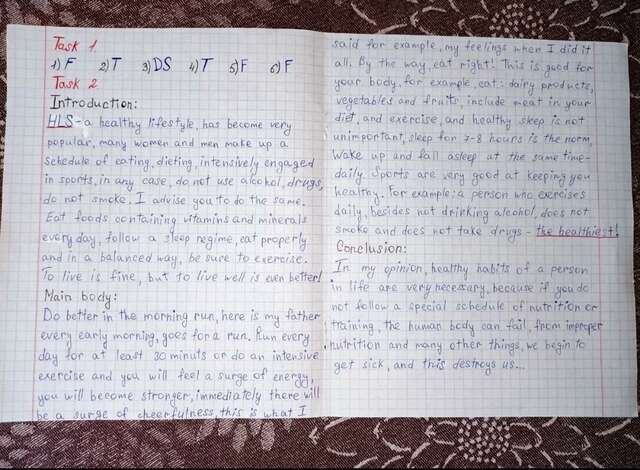 Task 1
1) F 2) T 3) DS 4) T 5) F 6) F
Task 2
Introduction:
HLS - a healthy lifestyle, has become very
popular, many women and men make up a
schedule of eating, dieting, intensively engaged
in sports, in any case, do not use alcohol, drugs,
do not smoke. I advise you to do the same.
Eat foods containing vitamins and minerals
every day, follow a sleep regime, eat properly
and in a balanced way, be sure to exercise.
To live is fine, but to live well is even better!
Main body:
Do better in the morning run, here is my father
every early morning, goes for a run. Run every
day for at least 30 minuts or do an intensive
exercise and you will feel a surge of energy,
you will become stronger, immediately there will
be a surge of cheerfulness, this is what I
said for example, my feelings when I did it
all. By the way, eat right! This is good for
your body, for example, eat: dairy products,
vegetables and fruits, include meat in your
diet, and exercise, and healthy sleep is not
unimportant, sleep for 7-8 hours is the norm,
Wake up and fall asleep at the same time-
daily. Sports are very good at keeping you
healthy. For example: a person who exercises
daily, besides not drinking alcohol, does not
smoke and does not take drugs - the healthiest!
Conclusion:
In my opinion, healthy habits of a person
in life are very necessary, because if you do
not follow a special schedule of nutrition or
training, the human body can fail, from improper
nutrition and many other things, we begin to
get sick, and this destroys us...